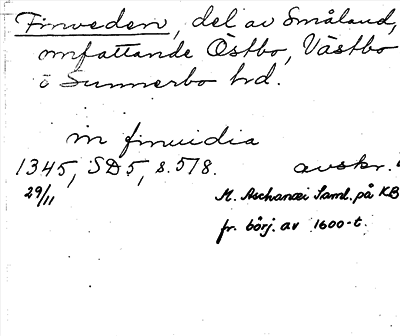 Finveden, del av Småland,
omfattande Östbo, Västbo
o Sunnerbo hrd.
in finuidia
1345, SD5, s. 578. avskr.
29/11 M. Aschanæi Saml. på KB
fr. börj. av 1600-t.